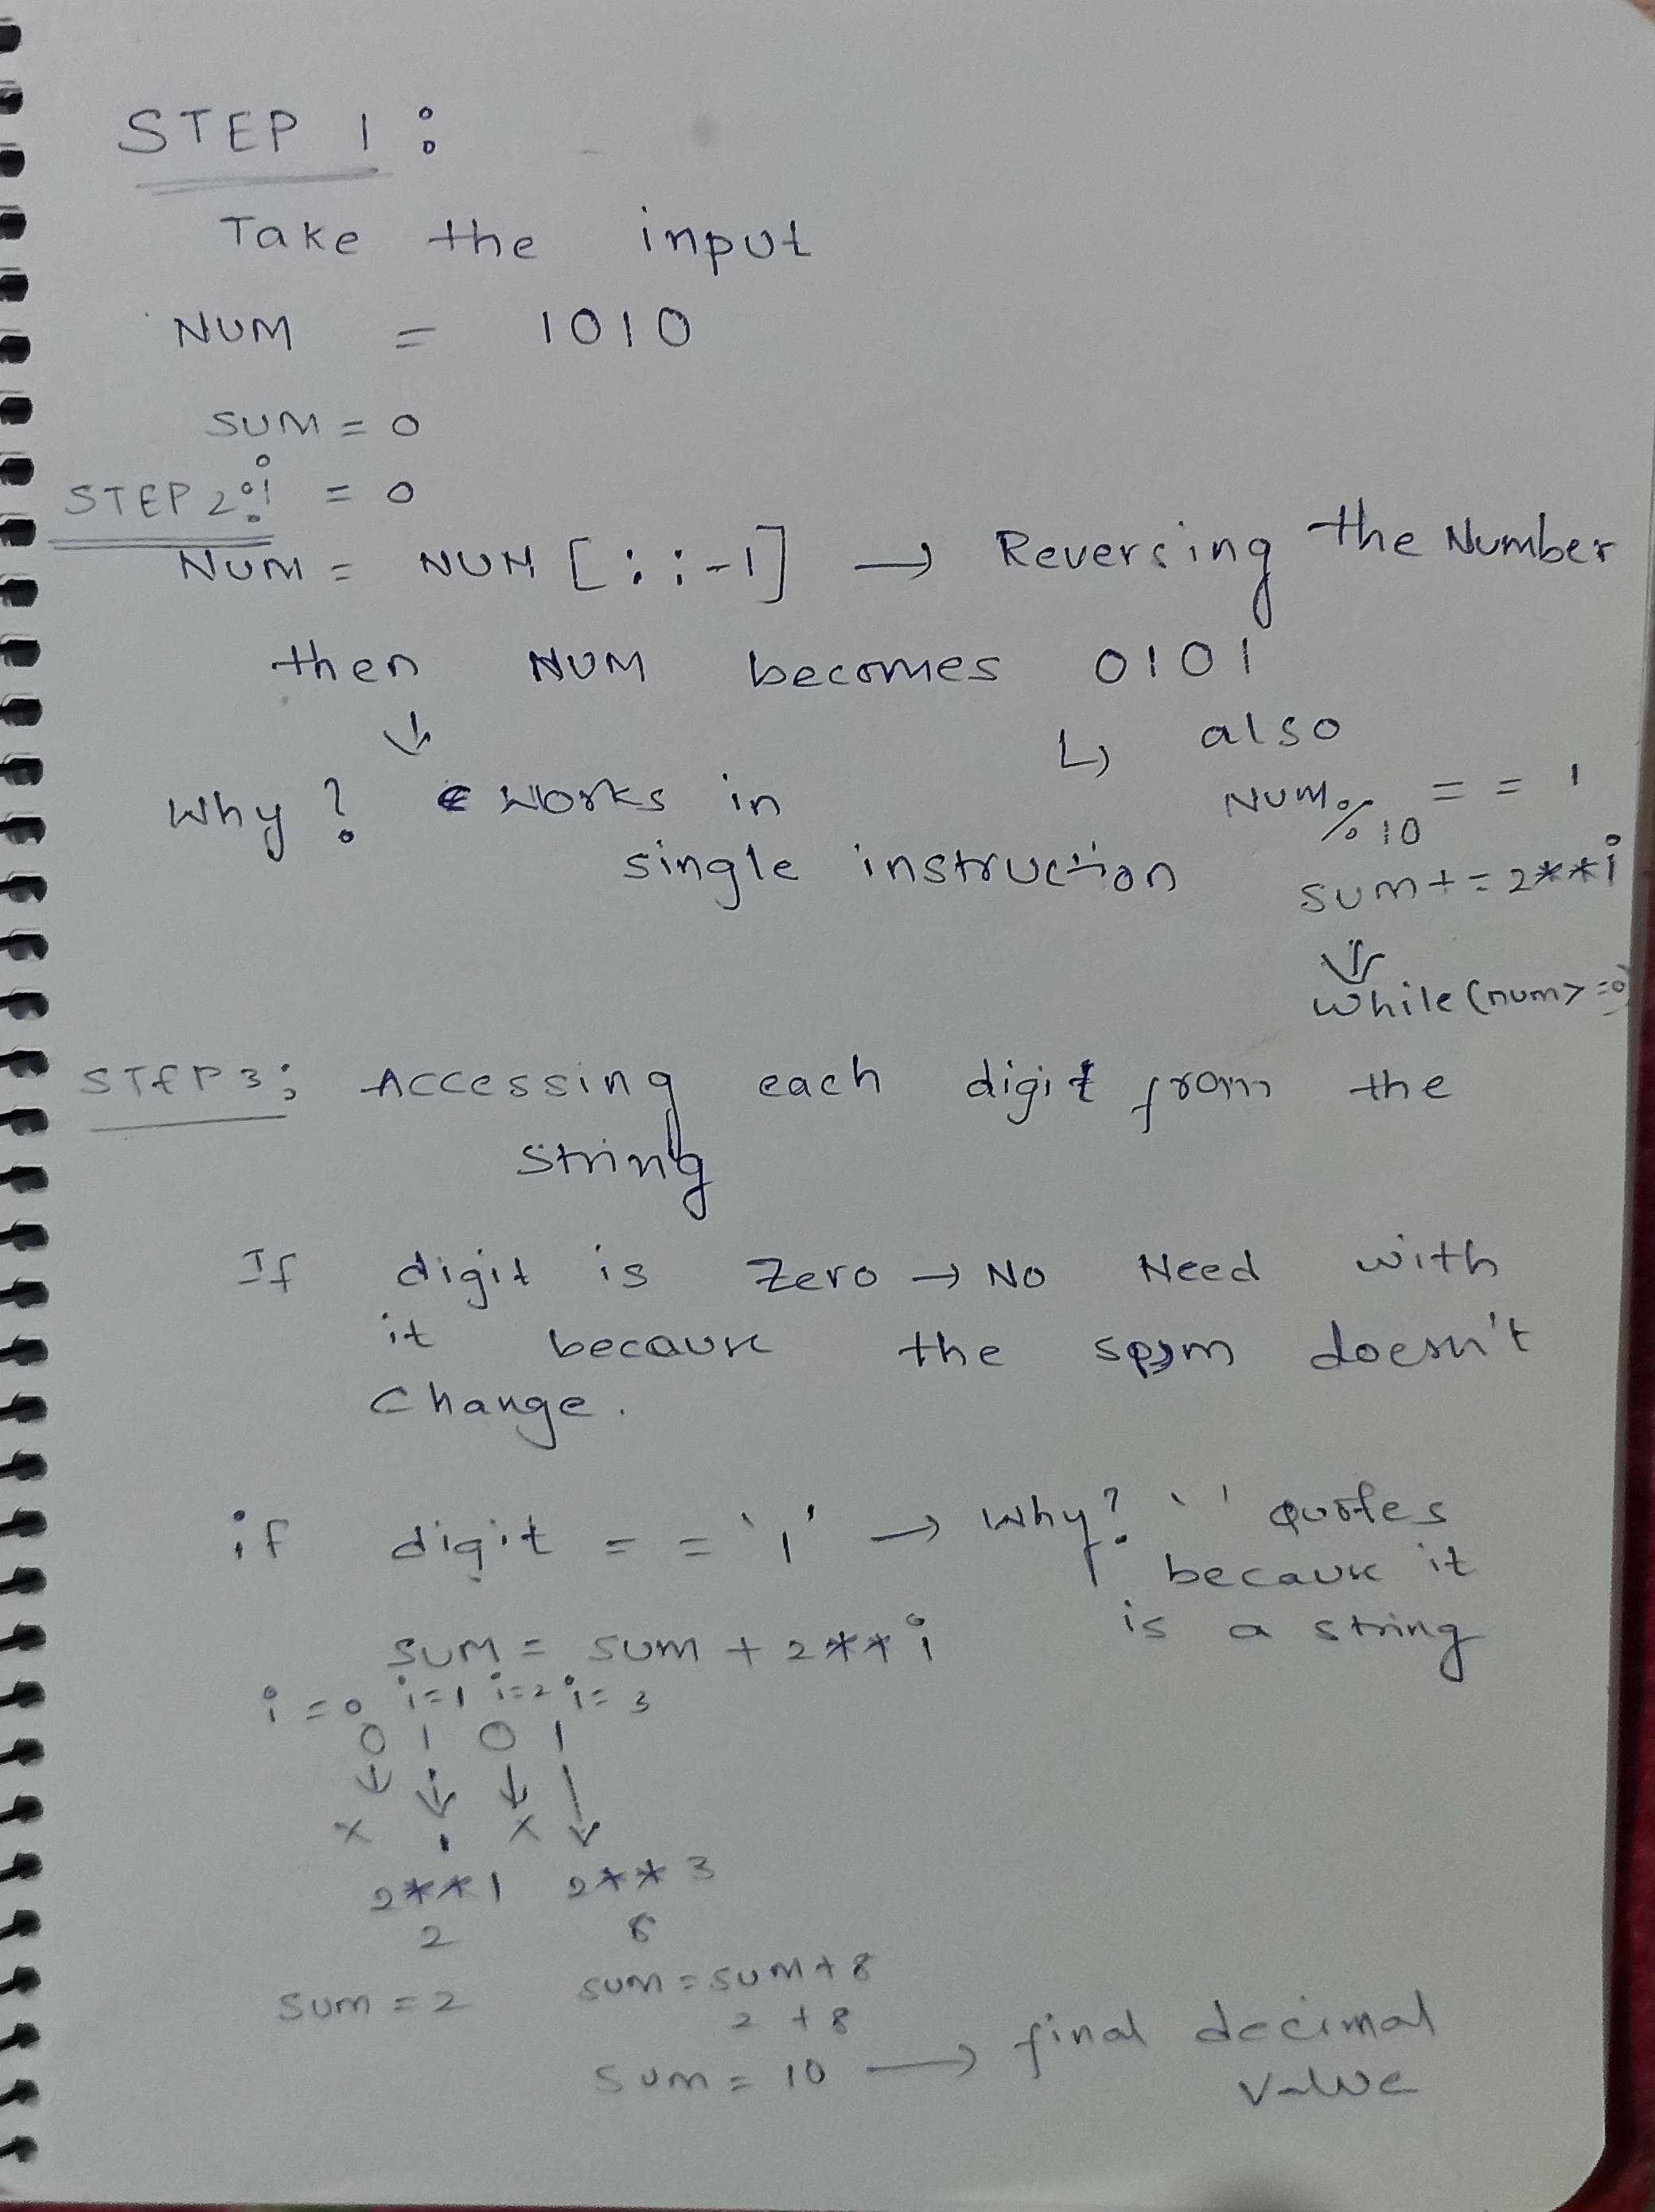 STEP 1 :
Take the input
NUM = 1010
SUM = 0
STEP 2: i = 0
NUM = NUM [: : -1] → Reversing the Number
then NUM becomes 0101
↓ ↳ also
Why ? works in NUM % 10 == 1
single instruction sum+=2**i
⇓
while(num>=0)
STEP 3: Accessing each digit from the
string
If digit is Zero → No Need with
it because the sum doesn't
change.
if digit == '1' → Why? ' ' quotes
because it
is a string
SUM = SUM + 2**i
i=0 i=1 i=2 i=3
0 1 0 1
↓ ↓ ↓ ↓
x x
2**1 2**3
2 8
sum = 2 sum = sum+8
2 +8
sum = 10 → final decimal
value